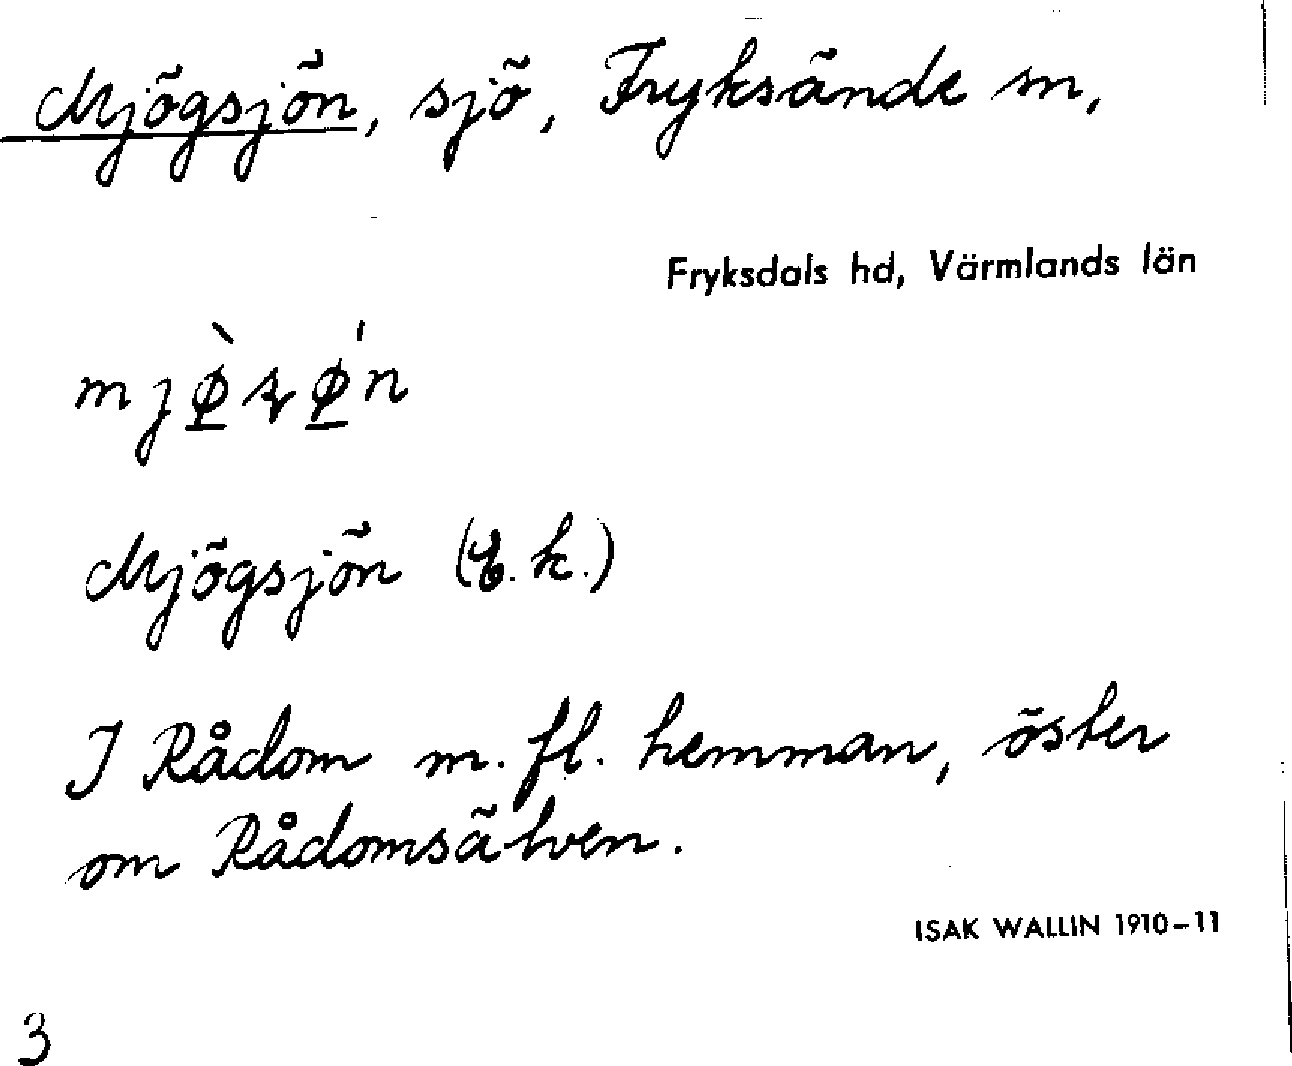 Mjögsjön, sjö, Fryksände sn,
Fryksdals hd, Värmlands län
Mjögsjön (E.k.)
I Rådom m. fl. hemman, öster
om Rådomsälven.
ISAK WALLIN 1910-11
3